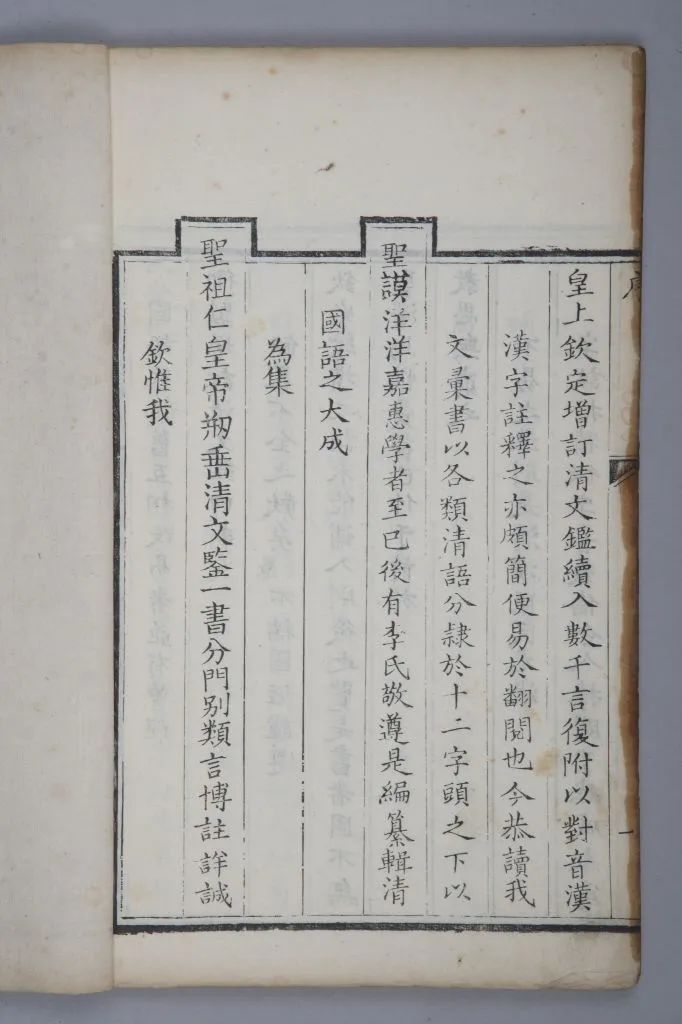 欽惟我
聖祖仁皇帝刱垂清文鍳一書分門別類言博註詳誠
為集
國語之大成
聖謨洋洋嘉惠學者至已後有李氏敬遵是編纂輯清
文彙書以各類清語分隸於十二字頭之下以
漢字註釋之亦頗簡便易於翻閱也今恭讀我
皇上欽定增訂清文鑑續入數千言復附以對音漢
一